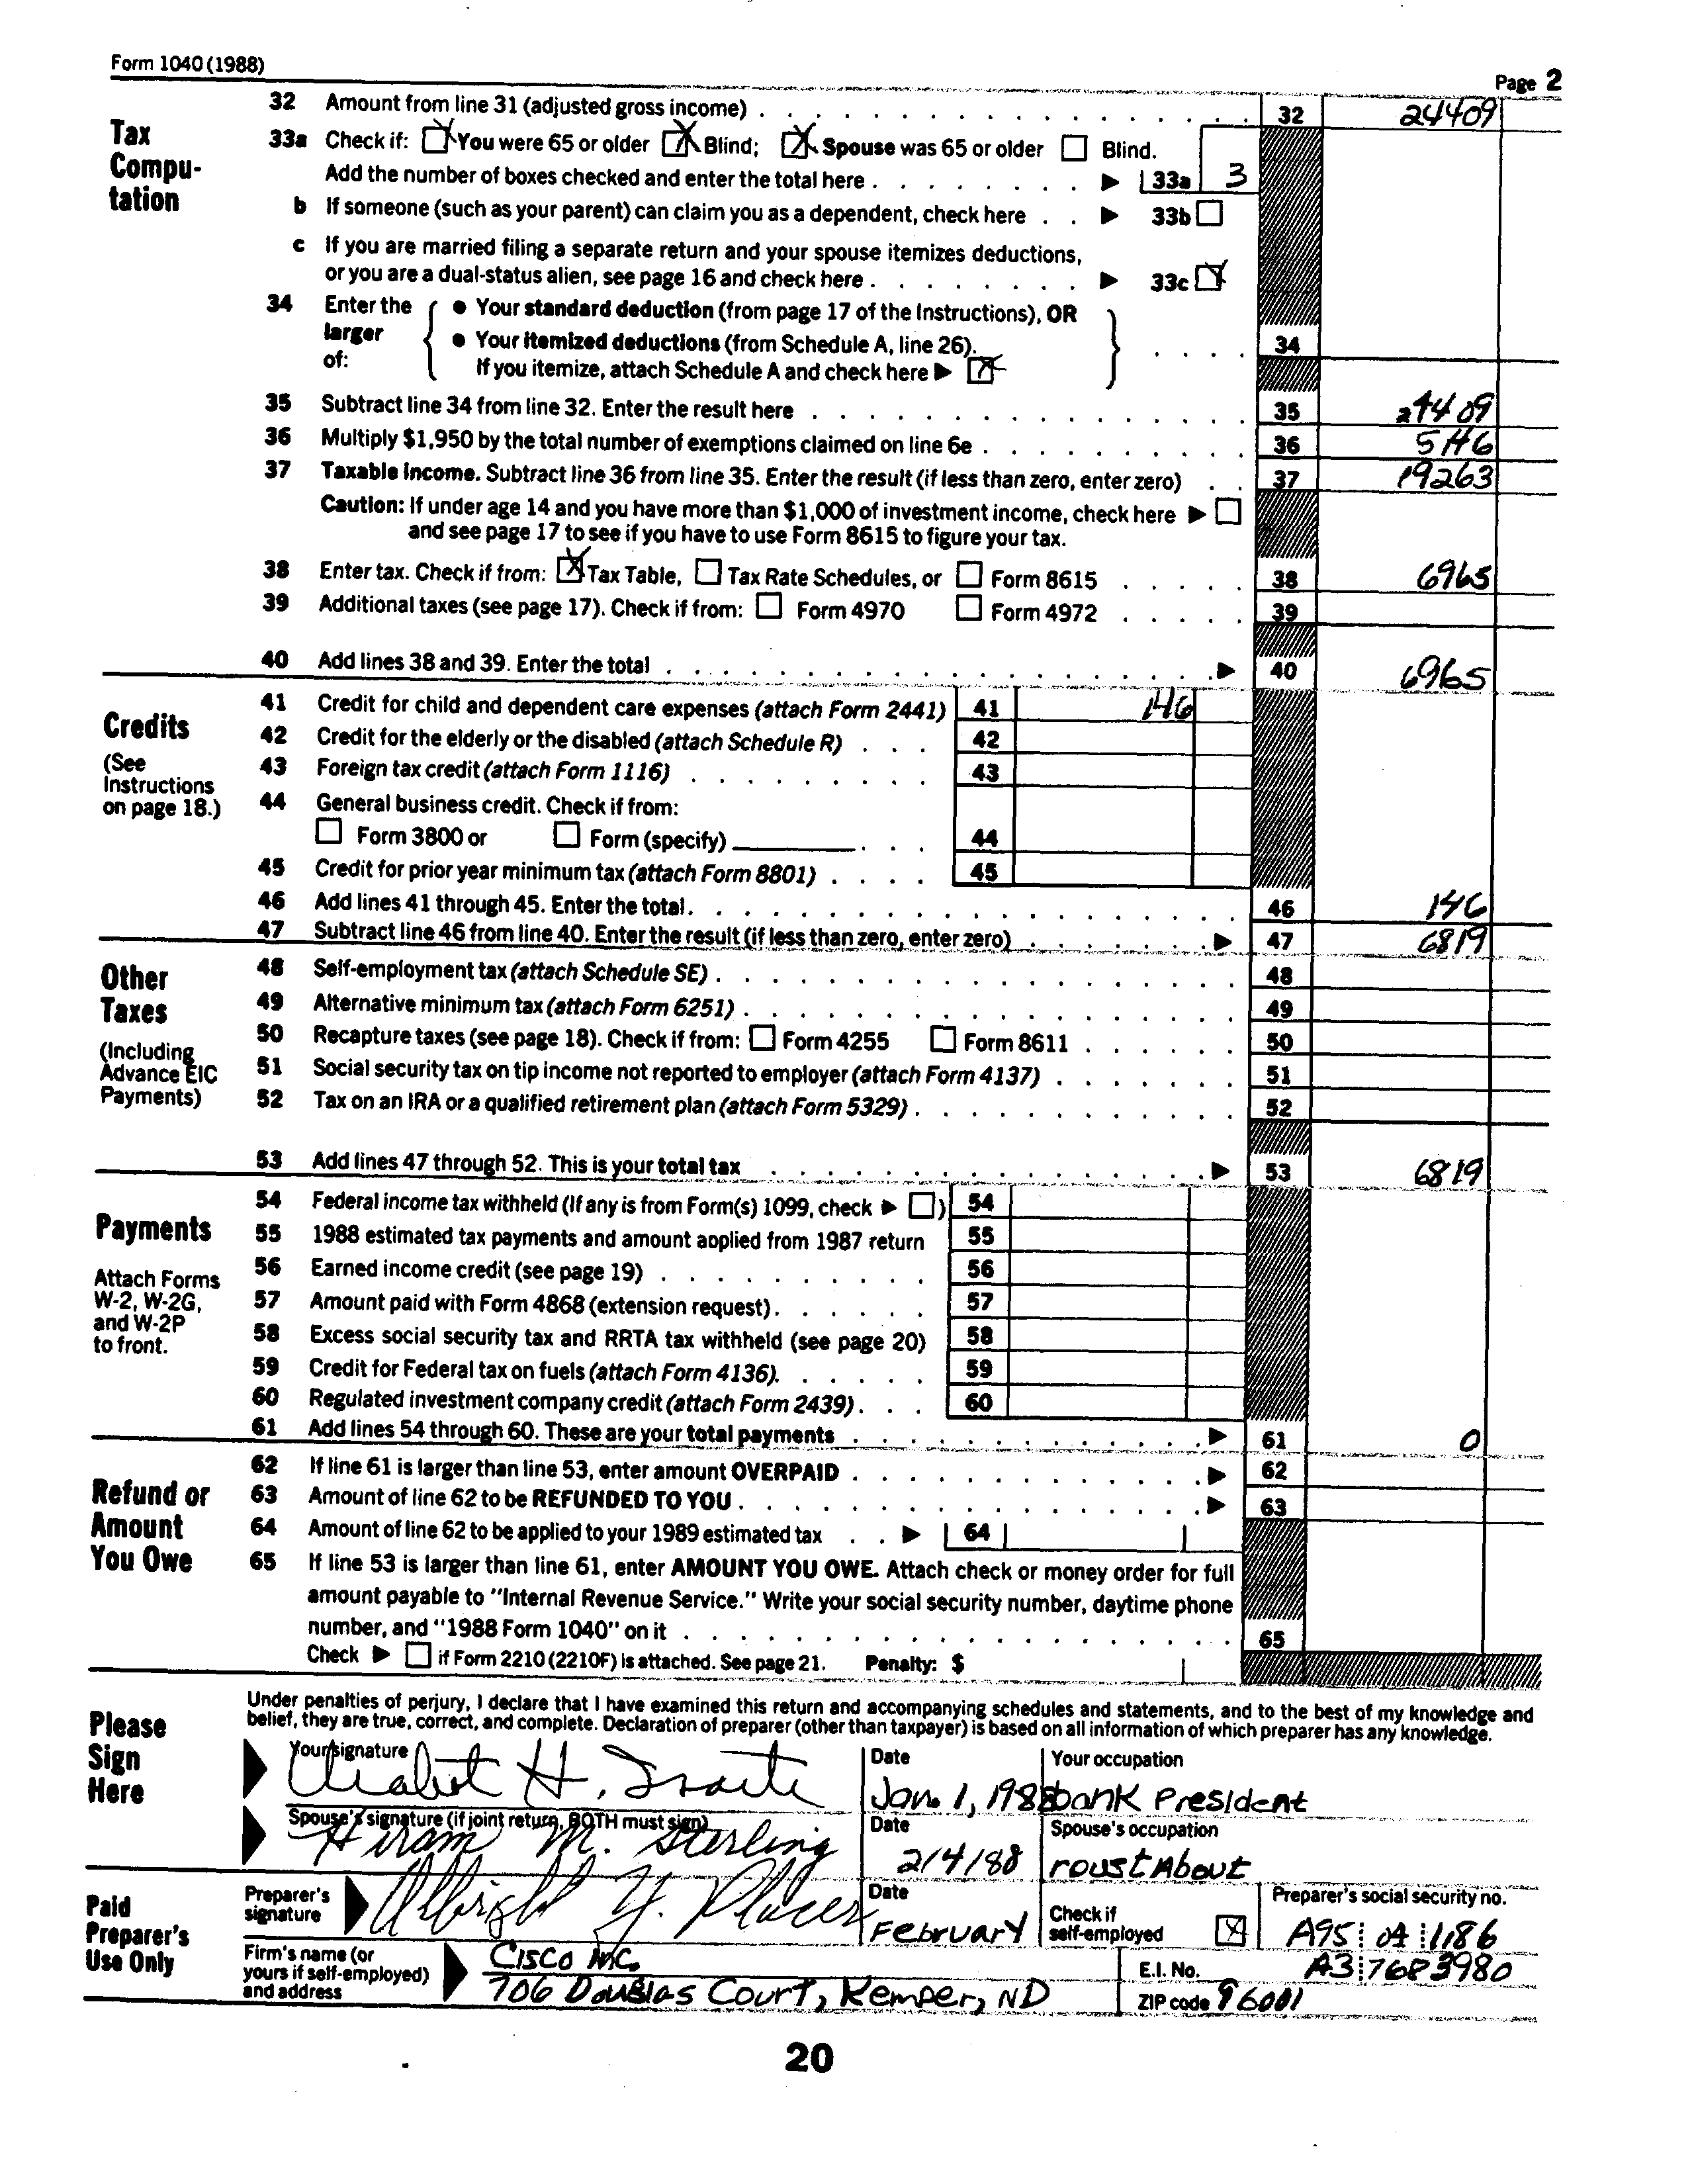 Form 1040 (1988)
Page 2
Tax Compu-tation
32 Amount from line 31 (adjusted gross income) 32 24409
33a Check if: You were 65 or older Blind; Spouse was 65 or older Blind.
Add the number of boxes checked and enter the total here 33a 3
b If someone (such as your parent) can claim you as a dependent, check here 33b
c If you are married filing a separate return and your spouse itemizes deductions,
or you are a dual-status alien, see page 16 and check here 33c
34 Enter the larger of:
• Your standard deduction (from page 17 of the Instructions), OR
• Your itemized deductions (from Schedule A, line 26). 34
If you itemize, attach Schedule A and check here
35 Subtract line 34 from line 32. Enter the result here 35 24409
36 Multiply $1,950 by the total number of exemptions claimed on line 6e 36 5146
37 Taxable income. Subtract line 36 from line 35. Enter the result (if less than zero, enter zero) 37 19263
Caution: If under age 14 and you have more than $1,000 of investment income, check here
and see page 17 to see if you have to use Form 8615 to figure your tax.
38 Enter tax. Check if from: Tax Table, Tax Rate Schedules, or Form 8615 38 6965
39 Additional taxes (see page 17). Check if from: Form 4970 Form 4972 39
40 Add lines 38 and 39. Enter the total 40 6965
Credits
(See Instructions on page 18.)
41 Credit for child and dependent care expenses (attach Form 2441) 41 146
42 Credit for the elderly or the disabled (attach Schedule R) 42
43 Foreign tax credit (attach Form 1116) 43
44 General business credit. Check if from:
Form 3800 or Form (specify) 44
45 Credit for prior year minimum tax (attach Form 8801) 45
46 Add lines 41 through 45. Enter the total. 46 146
47 Subtract line 46 from line 40. Enter the result (if less than zero, enter zero) 47 6819
Other Taxes
(Including Advance EIC Payments)
48 Self-employment tax (attach Schedule SE) 48
49 Alternative minimum tax (attach Form 6251) 49
50 Recapture taxes (see page 18). Check if from: Form 4255 Form 8611 50
51 Social security tax on tip income not reported to employer (attach Form 4137) 51
52 Tax on an IRA or a qualified retirement plan (attach Form 5329) 52
53 Add lines 47 through 52. This is your total tax 53 6819
Payments
Attach Forms W-2, W-2G, and W-2P to front.
54 Federal income tax withheld (If any is from Form(s) 1099, check ) 54
55 1988 estimated tax payments and amount applied from 1987 return 55
56 Earned income credit (see page 19) 56
57 Amount paid with Form 4868 (extension request) 57
58 Excess social security tax and RRTA tax withheld (see page 20) 58
59 Credit for Federal tax on fuels (attach Form 4136). 59
60 Regulated investment company credit (attach Form 2439) 60
61 Add lines 54 through 60. These are your total payments 61 0
Refund or Amount You Owe
62 If line 61 is larger than line 53, enter amount OVERPAID 62
63 Amount of line 62 to be REFUNDED TO YOU 63
64 Amount of line 62 to be applied to your 1989 estimated tax 64
65 If line 53 is larger than line 61, enter AMOUNT YOU OWE. Attach check or money order for full
amount payable to "Internal Revenue Service." Write your social security number, daytime phone
number, and "1988 Form 1040" on it 65
Check if Form 2210 (2210F) is attached. See page 21. Penalty: $
Please Sign Here
Under penalties of perjury, I declare that I have examined this return and accompanying schedules and statements, and to the best of my knowledge and
belief, they are true, correct, and complete. Declaration of preparer (other than taxpayer) is based on all information of which preparer has any knowledge.
Your signature Date Your occupation
H. Jan. 1, 1988 bank President
Spouse's signature (if joint return, BOTH must sign) Date Spouse's occupation
Hiram M. Sterling 2/4/88 roustAbout
Paid Preparer's Use Only
Preparer's signature Albright Y. Placer Date February Check if self-employed Preparer's social security no. A95 04 1186
Firm's name (or yours if self-employed) and address
Cisco INC. E.I. No. A3 7683980
706 Douglas Court, Kemper, ND ZIP code 96001
20